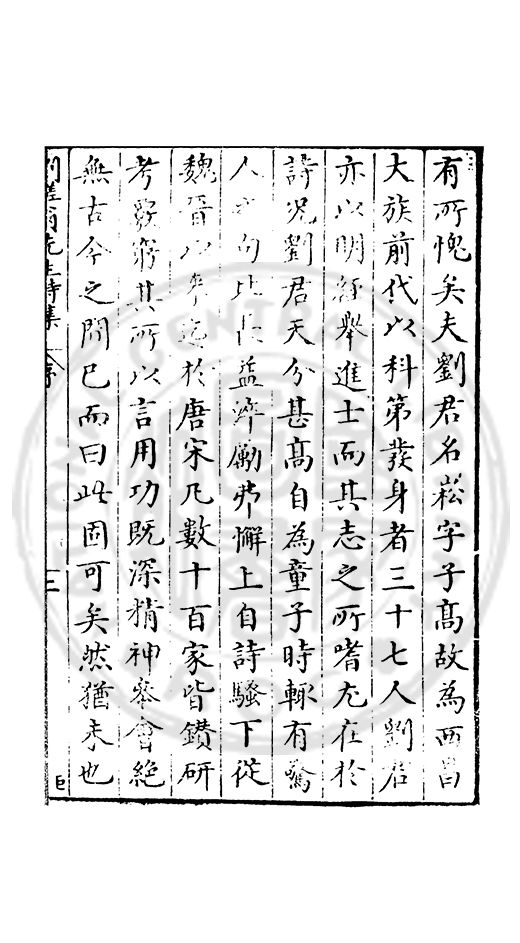 有所愧矣夫劉君名崧字子高故為西昌
大族前代以科第發身者三十七人劉君
亦以明經舉進士而其志之所嗜尤在於
詩况劉君天分甚高自為童子時輒有驚
人之句比長益淬勵弗懈上自詩騷下從
魏晉以來迄於唐宋凡數十百家皆鑽研
考覈窮其所以言用功既深精神參會絕
無古今之間已而曰此固可矣然猶未也
先生詩集 序 三